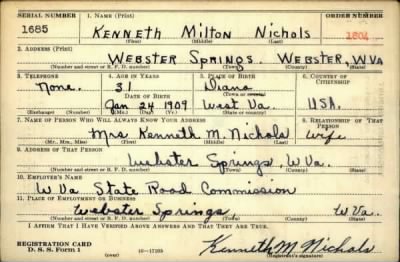 SERIAL NUMBER 1. NAME (Print) ORDER NUMBER
1685 KENNETH MILTON NICHOLS 1604
(First) (Middle) (Last)
2. ADDRESS (Print)
WEBSTER SPRINGS. WEBSTER, W.VA
(Number and street or R. F. D. number) (Town) (County) (State)
3. TELEPHONE 4. AGE IN YEARS 5. PLACE OF BIRTH 6. COUNTRY OF CITIZENSHIP
None. 31 Diana
DATE OF BIRTH (Town or county)
Jan 24 1909 West Va. USA.
(Exchange) (Number) (Mo.) (Day) (Yr.) (State or country)
7. NAME OF PERSON WHO WILL ALWAYS KNOW YOUR ADDRESS 8. RELATIONSHIP OF THAT PERSON
Mrs Kenneth M. Nichols Wife
(Mr., Mrs., Miss) (First) (Middle) (Last)
9. ADDRESS OF THAT PERSON
Webster Springs, W. Va.
(Number and street or R. F. D. number) (Town) (County) (State)
10. EMPLOYER'S NAME
W Va State Road Commission
11. PLACE OF EMPLOYMENT OR BUSINESS
Webster Springs, W Va.
(Number and street or R. F. D. number) (Town) (County) (State)
I AFFIRM THAT I HAVE VERIFIED ABOVE ANSWERS AND THAT THEY ARE TRUE.
REGISTRATION CARD
D. S. S. Form 1 (over) Kenneth M. Nichols
(Registrant's signature)